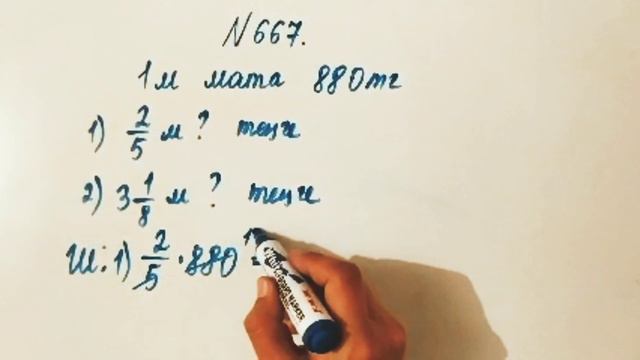 N 667.
1 м мата 880 тг
1) 2/5 м ? теңге
2) 3 1/8 м ? теңге
Ш: 1) 2/5 · 880